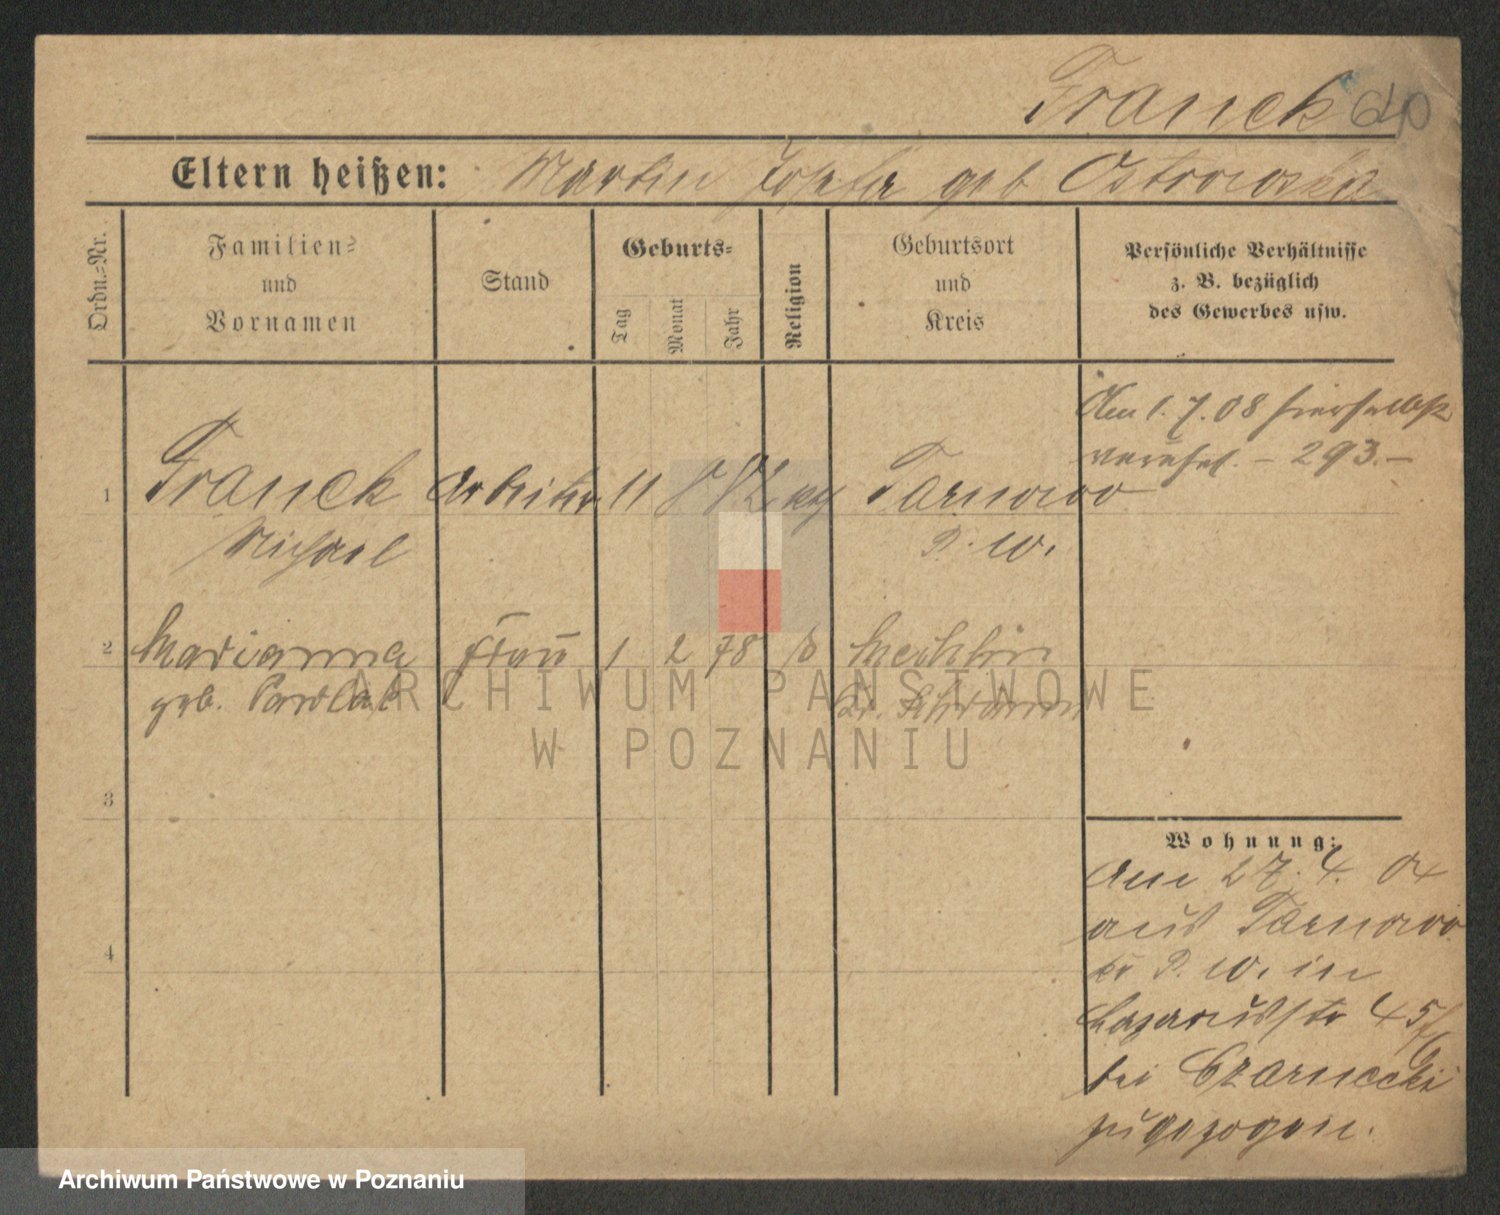 Franek 640
Eltern heißen: Martin Josefa geb Ostrowska
Ordn.=Nr.
Familien=
und
Vornamen
Stand
Geburts=
Tag
Monat
Jahr
Religion
Geburtsort
und
Kreis
Persönliche Verhältnisse
z. B. bezüglich
des Gewerbes usw.
Am 1. 7. 08 hierselbst
verehel. – 293. –
1 Franek Arbeiter 11 8 82 kth Tarnowo
Michael P. W.
2 Marianna Frau 1 2 78 Mechlin
geb. Pawlak Kr. Schrimm
3
4
Wohnung:
Am 27. 4. 04
aus Tarnowo
Kr P. W. in
Lazarusstr 45
bei Czarnecki
zugezogen.
ARCHIWUM PAŃSTWOWE
W POZNANIU
Archiwum Państwowe w Poznaniu